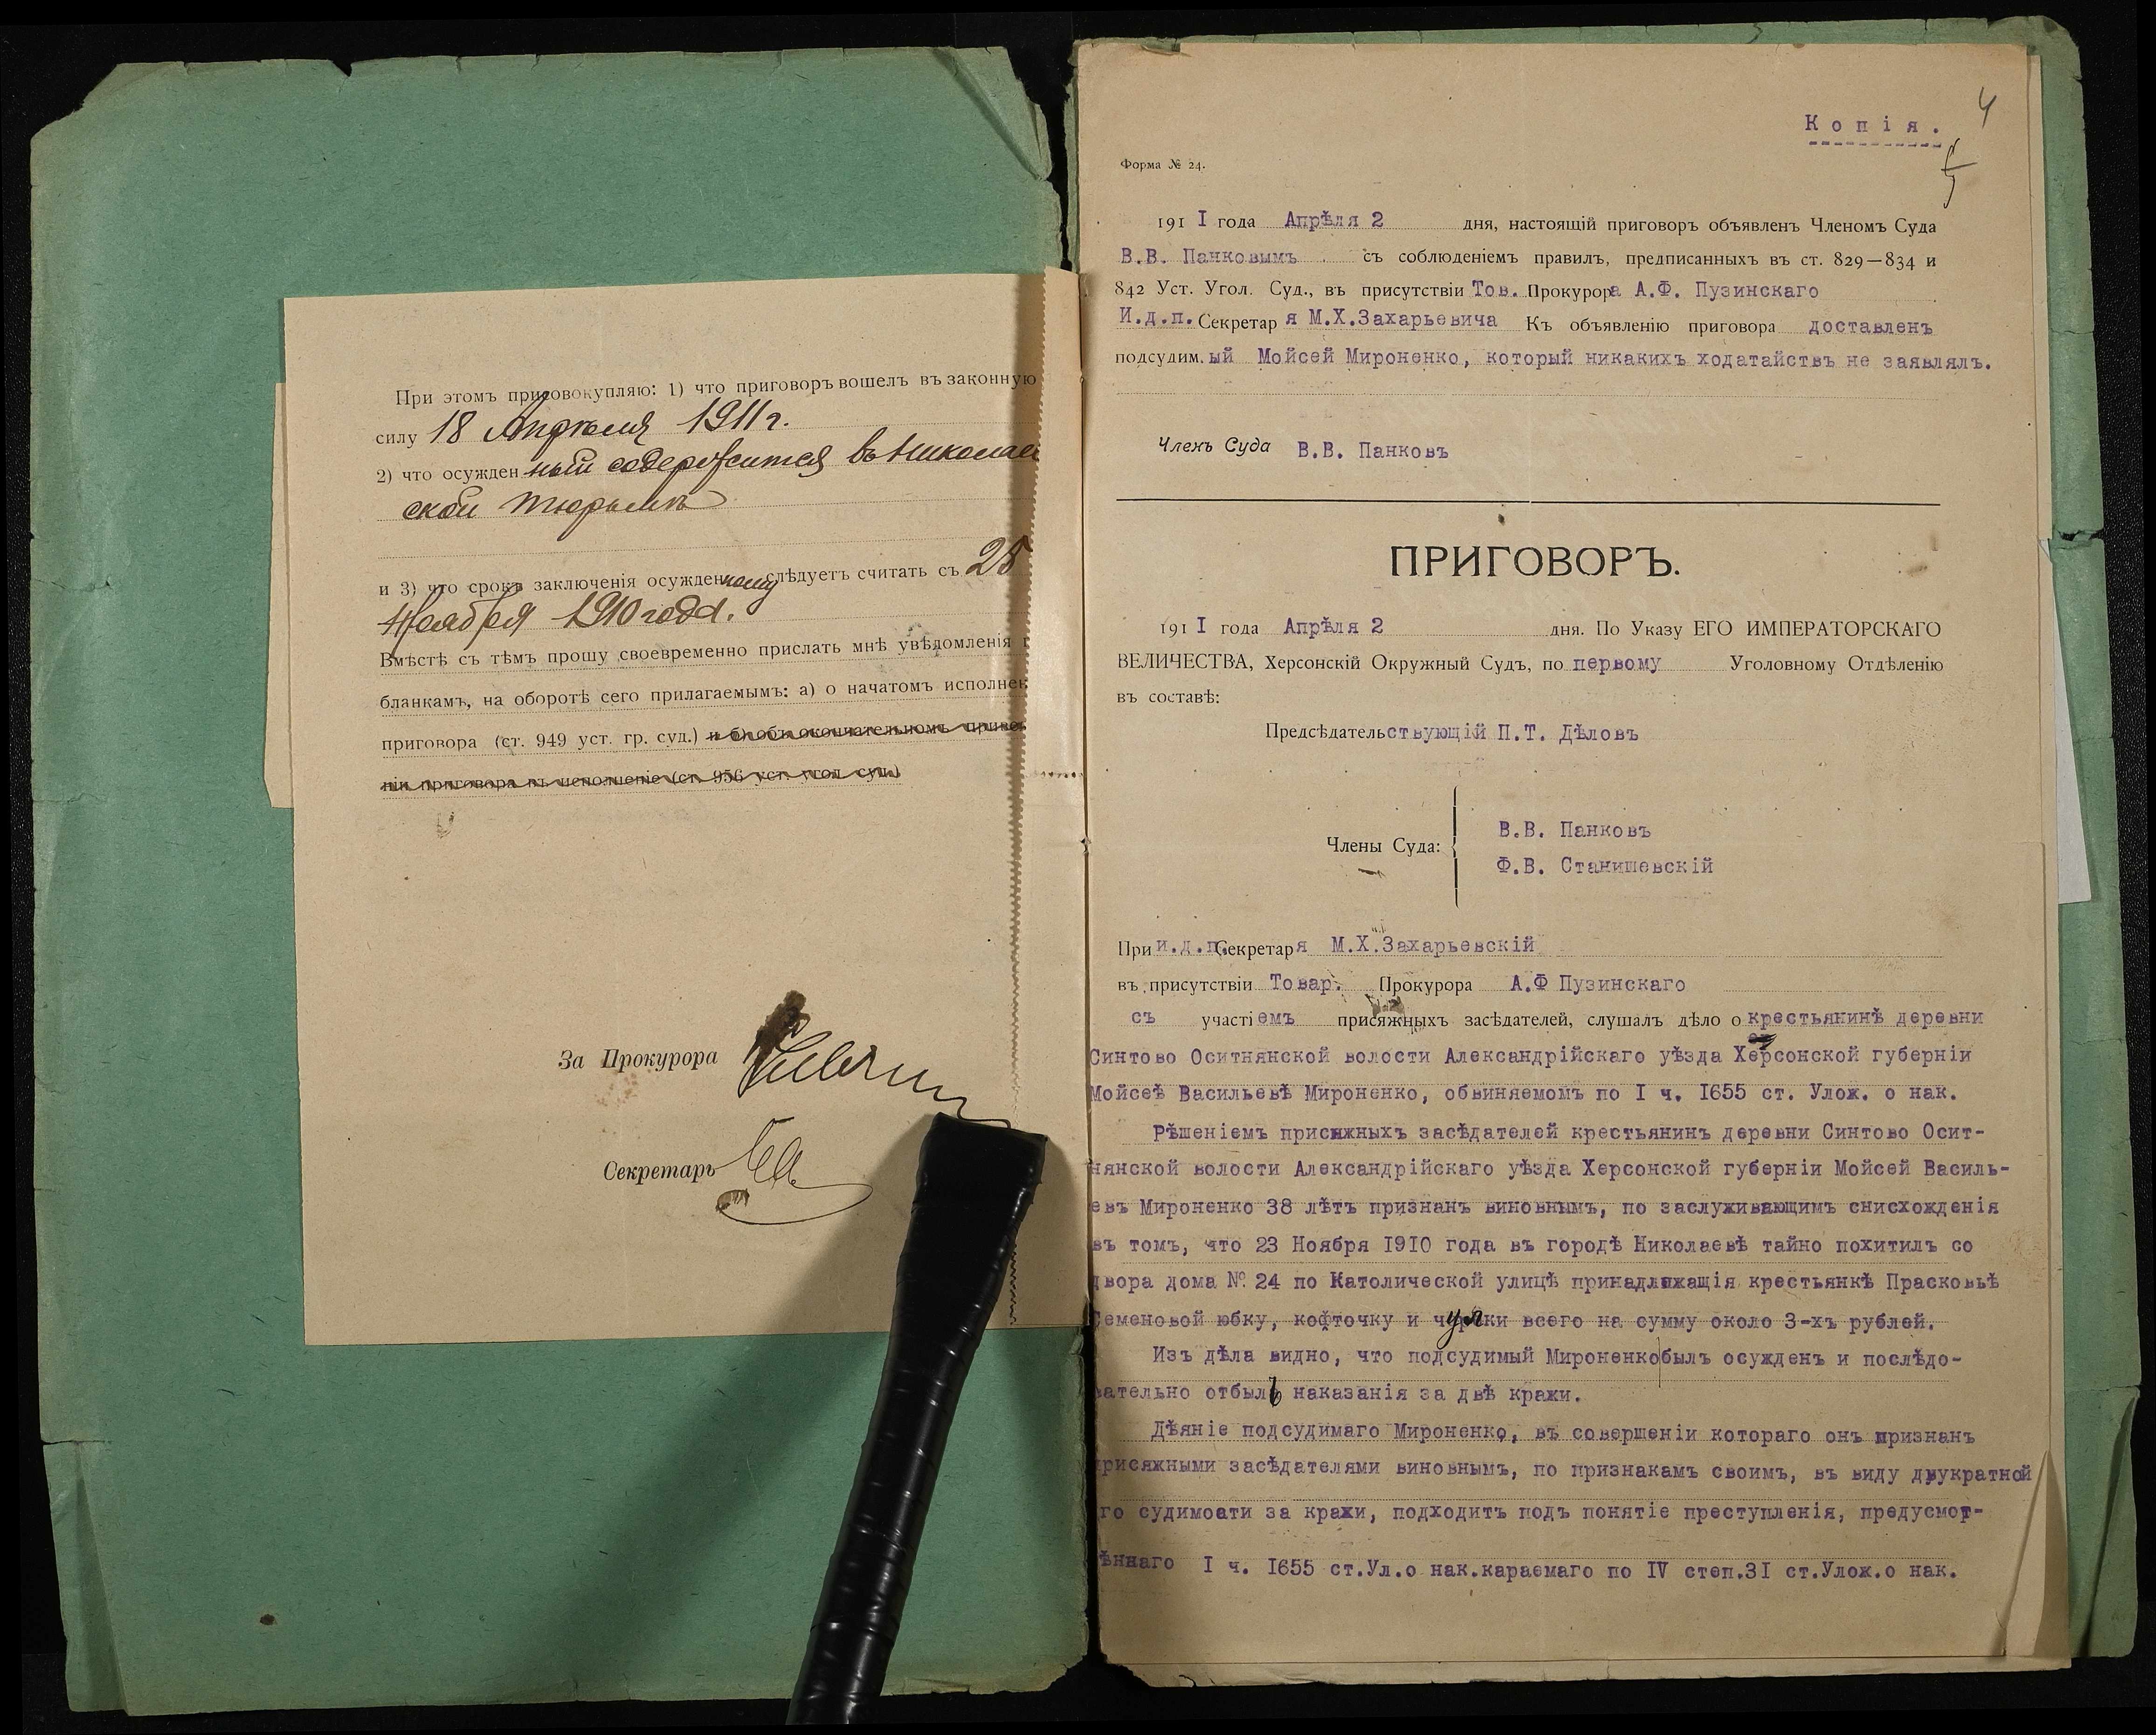 При этомъ приговокупляю: 1) что приговоръ вошелъ въ законную
силу 18 Апрѣля 1911 г.
2) что осужденный содержится въ Николаев
ской тюрьмѣ
и 3) что срокъ заключенія осужденному слѣдуетъ считать съ 25
Ноября 1910 года.
Вмѣстѣ съ тѣмъ прошу своевременно прислать мнѣ увѣдомленія п
бланкамъ, на оборотѣ сего прилагаемымъ: а) о начатомъ исполнен
приговора (ст. 949 уст. гр. суд.) и б) объ окончательномъ приве
ніи приговора въ исполненіе (ст. 956 уст. угол. суд.)
За Прокурора
Секретарь
4
Копія.
Форма № 24.
191I года Апрѣля 2 дня, настоящій приговоръ объявленъ Членомъ Суда
В.В. Панковымъ съ соблюденіемъ правилъ, предписанныхъ въ ст. 829—834 и
842 Уст. Угол. Суд., въ присутствіи Тов. Прокурора А.Ф. Пузинскаго
И.д.п. Секретаря М.Х.Захарьевича Къ объявленію приговора доставленъ
подсудим.ый Мойсей Мироненко, который никакихъ ходатайствъ не заявлялъ.
Членъ Суда В.В. Панковъ
ПРИГОВОРЪ.
191I года Апрѣля 2 дня. По Указу ЕГО ИМПЕРАТОРСКАГО
ВЕЛИЧЕСТВА, Херсонскій Окружный Судъ, по первому Уголовному Отдѣленію
въ составѣ:
Предсѣдательствующій П.Т. Дѣловъ
В.В. Панковъ
Члены Суда:
Ф.В. Станишевскій
При и.д.п. Секретаря М.Х.Захарьевскій
въ присутствіи Товар. Прокурора А.Ф Пузинскаго
съ участіемъ присяжныхъ засѣдателей, слушалъ дѣло о крестьянинѣ деревни
Синтово Оситнянской волости Александрійскаго уѣзда Херсонской губерніи
Мойсеѣ Васильевѣ Мироненко, обвиняемомъ по I ч. 1655 ст. Улож. о нак.
Рѣшеніемъ присяжныхъ засѣдателей крестьянинъ деревни Синтово Осит-
нянской волости Александрійскаго уѣзда Херсонской губерніи Мойсей Василь-
евъ Мироненко 38 лѣтъ признанъ виновнымъ, по заслуживающимъ снисхожденія
въ томъ, что 23 Ноября 1910 года въ городѣ Николаевѣ тайно похитилъ со
двора дома № 24 по Католической улицѣ принадлежащія крестьянкѣ Прасковьѣ
Семеновой юбку, кофточку и чулки всего на сумму около 3-хъ рублей.
Изъ дѣла видно, что подсудимый Мироненко былъ осужденъ и послѣдо-
вательно отбылъ наказанія за двѣ кражи.
Дѣяніе подсудимаго Мироненко, въ совершеніи котораго онъ признанъ
присяжными засѣдателями виновнымъ, по признакамъ своимъ, въ виду двукратной
го судимоати за кражи, подходитъ подъ понятіе преступленія, предусмот-
ѣннаго I ч. 1655 ст.Ул.о нак.караемаго по IV степ.31 ст.Улож.о нак.